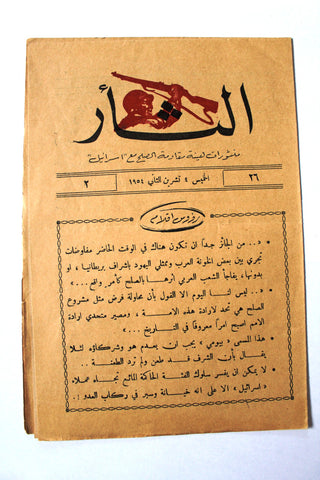 الثأر
منشورات هيئة مقاومة الصلح مع "اسرائيل"
٢٦
الخميس ٤ تشرين الثاني ١٩٥٤
٢
رؤوس أقلام
• «... من الجائز جداً ان تكون هناك في الوقت الحاضر مفاوضات
تجري بين بعض الخونة العرب وممثلي اليهود باشراف بريطانيا ، او
بدونها ، يفاجأ الشعب العربي أثرها بالصلح كأمر واقع ... »
• «.. ليس لنا اليوم الا القول بأن محاولة فرض مثل مشروع
الصلح هي تحد لارادة هذه الامـة ، ومصير متحدي ارادة
الامم اصبح امراً معروفاً في التاريخ ... »
• هذا المسمى « بيومي » يجب ان يعدم هو وشركاؤه لئلا
يقال بأن الشرف قد طعن ولم ترد الطعنة ..
• لا يمكن ان يفسر سلوك الفئة الحاكمة المائع تجـاه عملاء
« اسرائيل » الا على انه خيـانة وسير في ركاب العدو !.